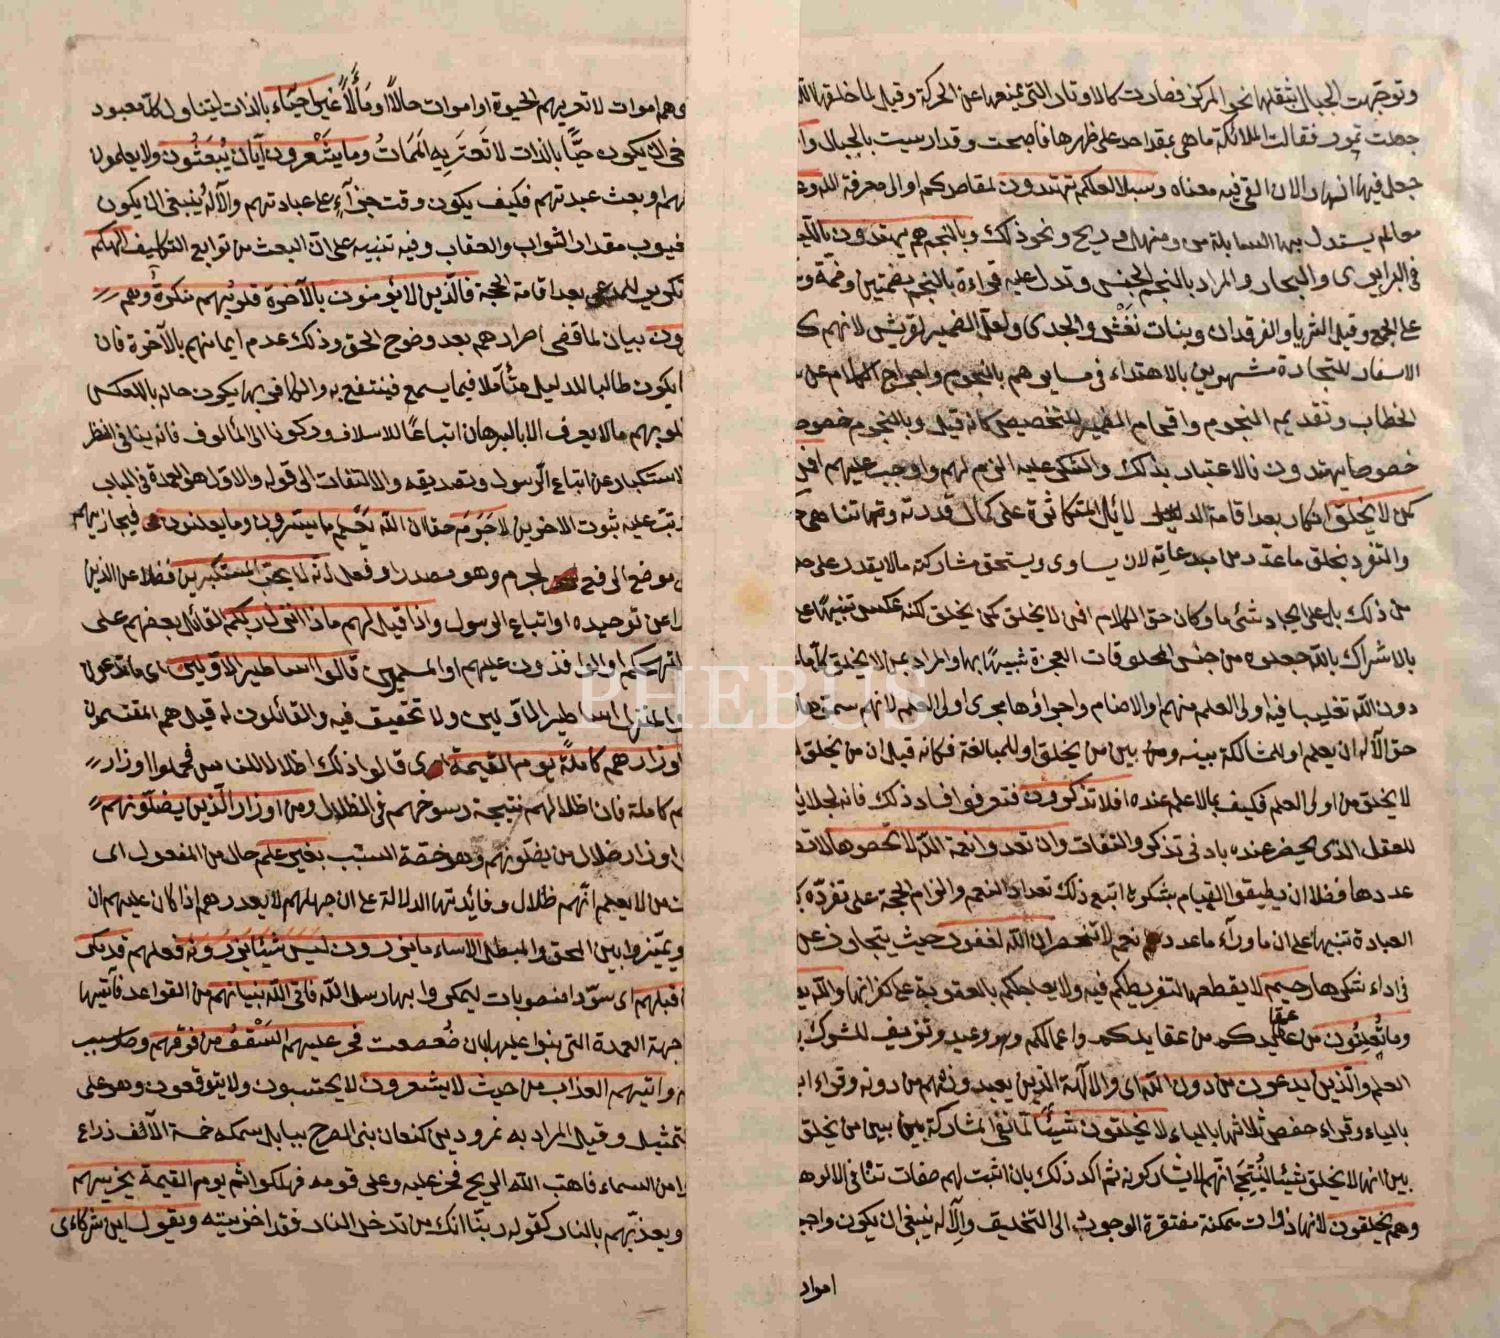 وتوجهت الجبال بثقلها نحو المركز فصارت كالاوتاد التي تمنعها عن الحركة وقيل لما خلق الله
جعلت تمور فقالت الملائكة ما هي بمقر احد على ظهرها فاصبحت وقد ارسيت بالجبال وا
جعل فيها انهارا لان القى فيه معناه وسبلا لعلكم تهتدون لمقاصدكم او الى معرفة الله وع
معالم يستدل بها السابلة من ومنهل وريح ونحو ذلك وبالنجم هم يهتدون بالليل
في البراري والبحار والمراد بالنجم الجنس وتدل عليه قراءة بالنجم بضمتين وضمة وس
على الجمع وقيل الثريا والفرقدان وبنات نعش والجدى ولعل الضمير لقريش لانهم ك
الاسفار للتجارة مشهورين بالاهتداء في مسايرهم بالنجوم واخراج الكلام عن س
الخطاب وتقديم النجوم واقحام الضمير للتخصيص كانه قيل وبالنجوم خصوص
خصوصا يهتدون فالاعتبار بذلك والشكر عليه الزم لهم واوجب عليهم افمن
كمن لا يخلق انكار بعد اقامة الدلائل المتكاثرة على كمال قدرته وتناهى ح
والتفرد بخلق ما عدد من مبدعاته لان يساوى ويستحق مشاركته مالا يقدر على خل
من ذلك بل على ايجاد شئ ما وكان حق الكلام افمن لا يخلق كمن يخلق لكنه عكس تنبيها عل
بالاشراك بالله جعلوه من جنس المخلوقات العجزة شبيها بها والمراد بمن لا يخلق كل ما
دون الله تغليبا فيه اولى العلم منهم والاصنام واجراؤها مجرى اولى العلم لانهم سموها
حق الاله ان يعلم او للمشاكلة بينه وبين من يخلق او للمبالغة فكانه قيل ان من يخلق
لا يخلق من اولى العلم فكيف بما لا علم عنده افلا تذكرون فتعرفوا فساد ذلك فانه لجلائه
للعقل الذى يحضر عنده بادنى تذكر والتفات وان تعدوا نعمة الله لا تحصوها لا تض
عددها فضلا ان يطيقوا القيام بشكره اتبع ذلك تعداد النعم والزام الحجة على تفرده ب
العبادة تنبيها على ان ما وراء ما عدد نعم لا تنحصر ان الله لغفور حيث يتجاوز عن
في اداء شكرها رحيم لا يقطعها لتفريطكم فيه ولا يعاجلكم بالعقوبة على كفرانها والله يع
وما تعلنون من عقايدكم من عقايدكم واعمالكم وهو وعيد وتزييف للشرك ب
العلم والذين يدعون من دون الله اى والالهة الذين يعبدونهم من دونه وقراء اب
بالياء وقراء حفص ثلاثها بالياء لا يخلقون شيئا لما نفى المشاركة بين من يخلق
بين انها لا يخلق شيئا لينتج انهم لا يشاركونه ثم اكد ذلك بان اثبت لهم صفات تنافى الالوه
وهم يخلقون لانها ذوات ممكنة مفتقرة الوجود الى التخليق والاله ينبغى ان يكون واجب
اموات
وهم اموات لا تعتريهم الحيوة او اموات حالا او مآلا غير احياء بالذات ليتناول كل معبود
ان يكون حيا بالذات لا تعتريه الممات وما يشعرون ايان يبعثون ولا يعلمون
وبعث عبدتهم فكيف يكون وقت جزآء على عبادتهم والاله ينبغى ان يكون
مقدرا للثواب والعقاب وفيه تنبيه على ان البعث من توابع التكليف الهكم
تكرير للمدعى بعد اقامة الحجة فالذين لا يؤمنون بالآخرة قلوبهم منكرة وهم
ون بيان لما اقتضى اصرارهم بعد وضوح الحق وذلك عدم ايمانهم بالآخرة فان
يكون طالبا للدليل متأملا فيما يسمع فينتفع به والكافر بها يكون حاله بالعكس
لوبهم مالا يعرف الا بالبرهان اتباعا للاسلاف وركونا الى المألوف فانه ينافى النظر
لاستكبار عن اتباع الرسول وتصديقه والالتفات الى قوله والاول هو العمدة في الباب
رتب عليه ثبوت الاخرين لا جرم حقا ان الله يعلم ما يسرون وما يعلنون فيجازيهم
موضع الرفع لجرم وهو مصدر او فعل انه لا يحب المستكبرين فضلا عن الذين
عن توحيده او اتباع الرسول واذا قيل لهم ماذا انزل ربكم القائل بعضهم على
التهكم او الوافدون عليهم او المسلمون قالوا اساطير الاولين اى ما تدعون
والمنزل اساطير الاولين ولا تحقيق فيه والقائلون له قيل هم المقتسمون
اوزارهم كاملة يوم القيمة اى قالوا ذلك اضلالا للناس فحملوا اوزار
م كاملة فان اضلالهم نتيجة رسوخهم في الضلال ومن اوزار الذين يضلونهم
اوزار ضلال من يضلونهم وهو حصة السبب بغير علم حال من المفعول اى
من لا يعلم انهم ضلال وفائدتها الدلالة على ان جهلهم لا يعذرهم اذ كان عليهم ان
ويميزوا بين المحق والمبطل الا ساء ما يزرون ليس شيئا يزرونه فعلهم قد مكر
قبلهم اى سووا منصوبات ليمكروا بها رسل الله فاتى الله بنيانهم من القواعد فآتيها
جهة العمدة التى بنوا عليها بان ضعضعت فخر عليهم السقف من فوقهم وصار سبب
واتيهم العذاب من حيث لا يشعرون لا يحتسبون ولا يتوقعون وهو على
تمثيل وقيل المراد به نمرود بن كنعان بنى الصرح ببابل سمكه خمسة آلاف ذراع
من السماء فاهب الله الريح فخر عليه وعلى قومه فهلكوا ثم يوم القيمة يخزيهم
ويعذبهم بالنار كقوله ربنا انك من تدخل النار فقد اخزيته ويقول اين شركاءى